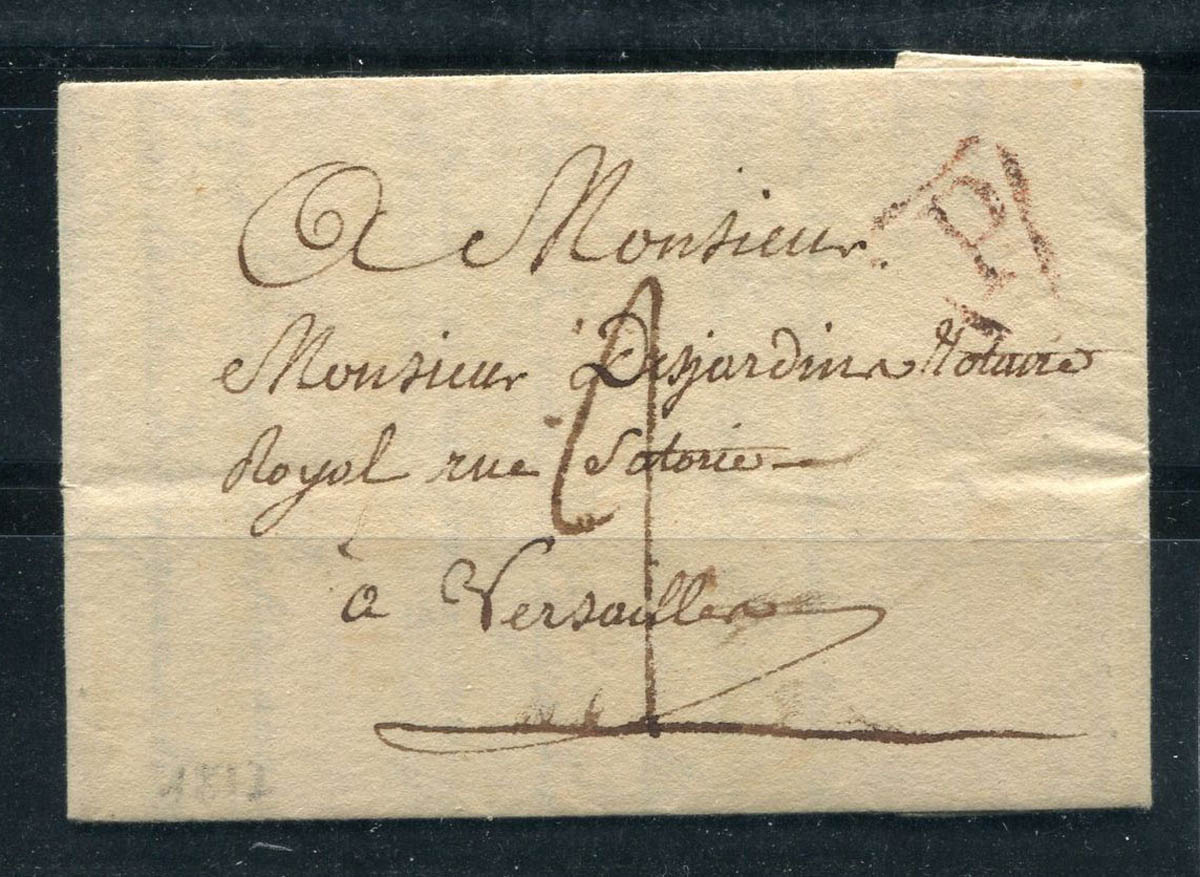 A Monsieur
P
Monsieur Desjardins Notaire
Royal rue Satorie
à Versailles